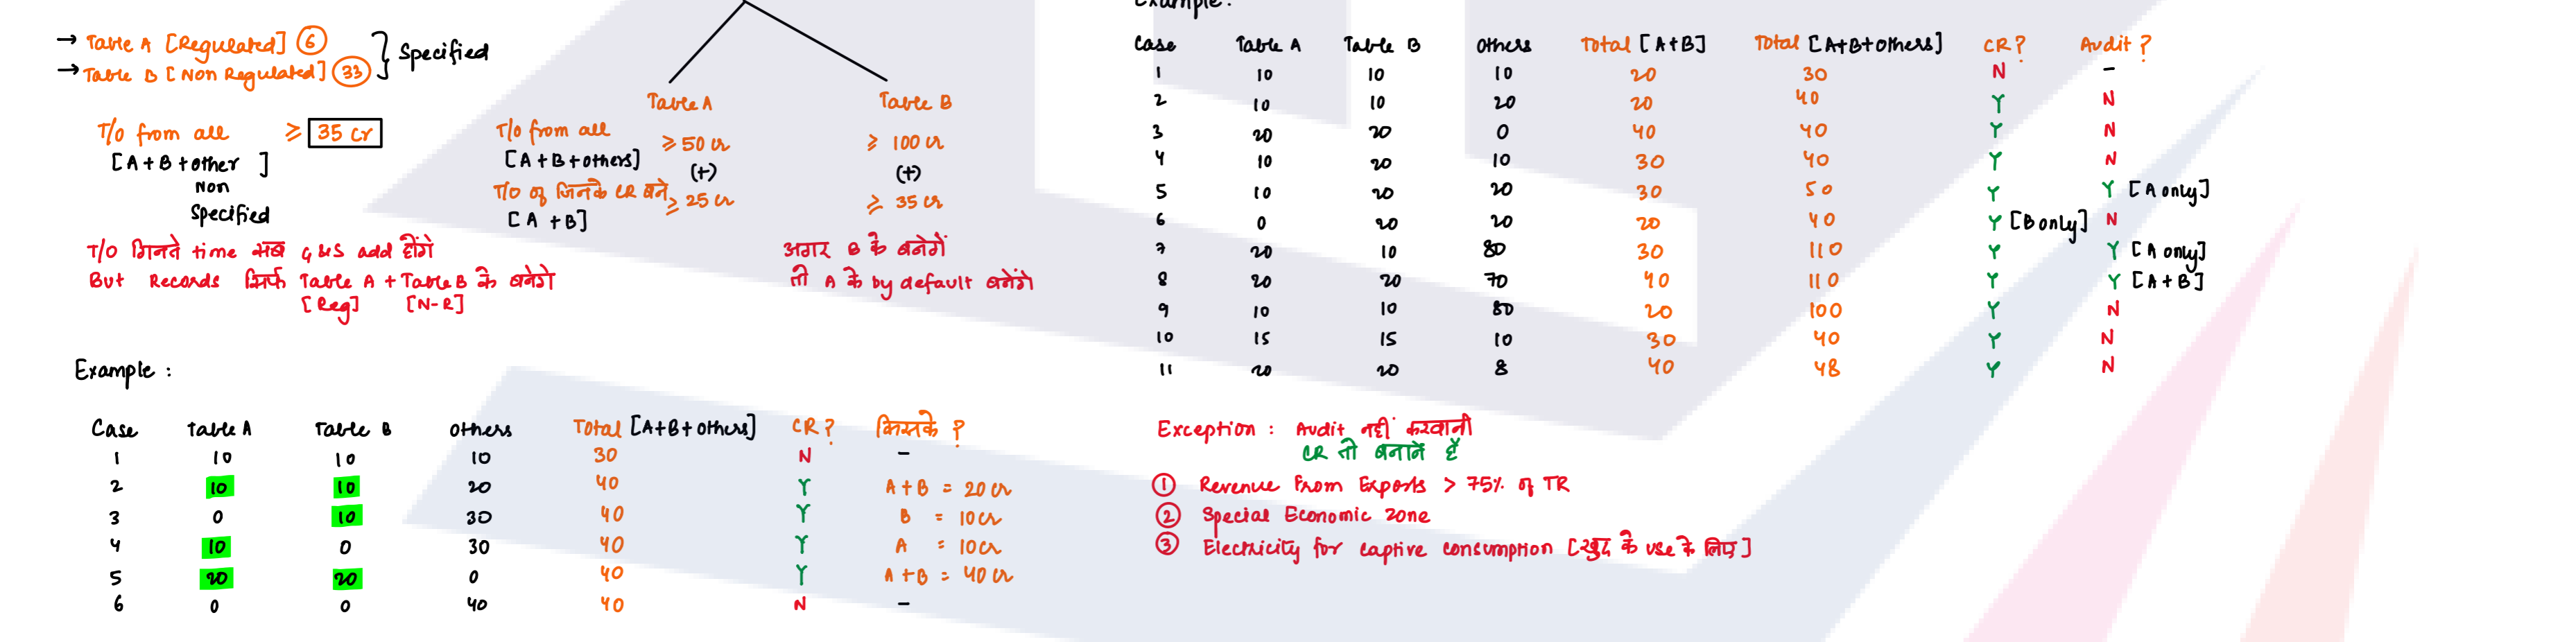 → Table A [Regulated] 6
→ Table B [Non Regulated] 33
} Specified
T/O from all ≥ 35 Cr
[A+B+other ]
Non
Specified
T/O गिनते time सब G&S add होंगे
But Records सिर्फ Table A + Table B के बनेगे
[Reg] [N-R]
Table A Table B
T/O from all
[A+B+others] ≥ 50 cr ≥ 100 cr
(+) (+)
T/O of जिनके CR बने ≥ 25 cr ≥ 35 cr
[A+B]
अगर B के बनेगें
तो A के by default बनेंगे
Example :
Case Table A Table B others Total [A+B+others] CR? किसके ?
1 10 10 10 30 N –
2 10 10 20 40 Y A+B = 20 cr
3 0 10 30 40 Y B = 10 cr
4 10 0 30 40 Y A = 10 cr
5 20 20 0 40 Y A+B = 40 cr
6 0 0 40 40 N –
Example:
Case Table A Table B others Total [A+B] Total [A+B+others] CR? Audit ?
1 10 10 10 20 30 N –
2 10 10 20 20 40 Y N
3 20 20 0 40 40 Y N
4 10 20 10 30 40 Y N
5 10 20 20 30 50 Y Y [A only]
6 0 20 20 20 40 Y [B only] N
7 20 10 80 30 110 Y Y [A only]
8 20 20 70 40 110 Y Y [A+B]
9 10 10 80 20 100 Y N
10 15 15 10 30 40 Y N
11 20 20 8 40 48 Y N
Exception : Audit नहीं करवानी
CR तो बनाने हैं
① Revenue from Exports > 75% of TR
② Special Economic zone
③ Electricity for captive consumption [खुद के use के लिए]